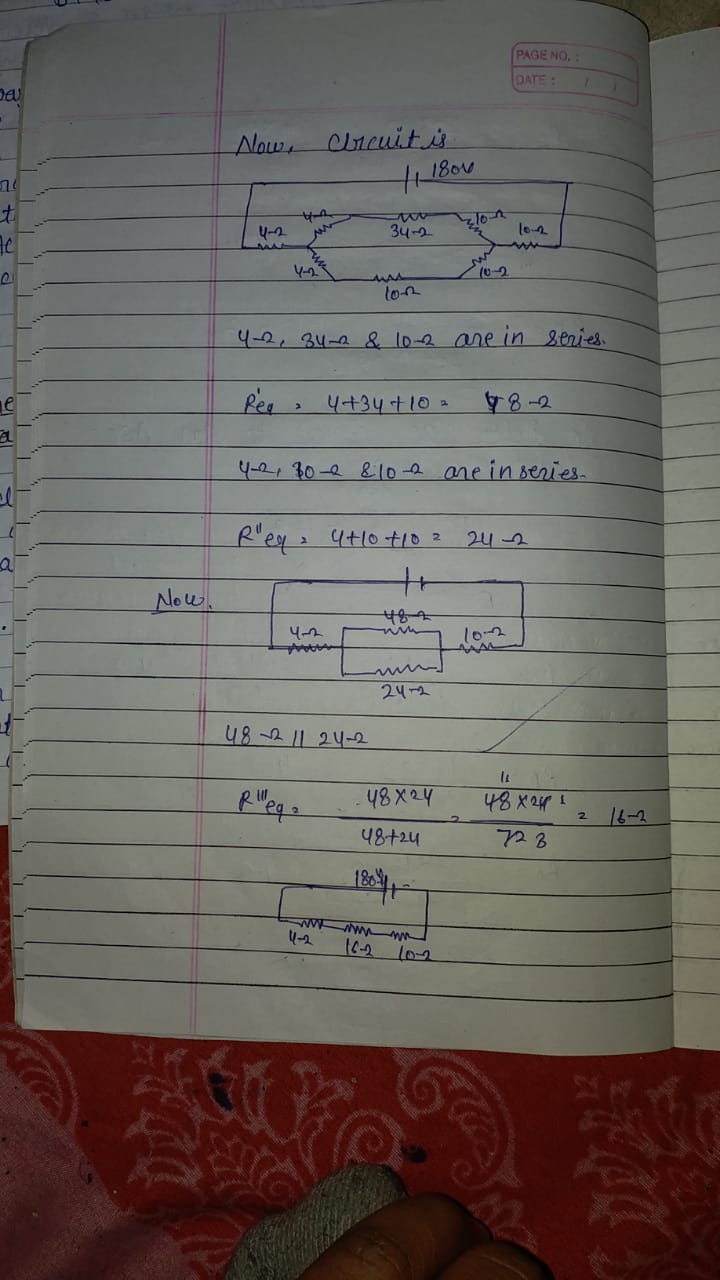 PAGE NO. :
DATE : / /
Now, Circuit is
180V
4Ω 4Ω 34Ω 10Ω 10Ω
4Ω 10Ω 10Ω
4Ω, 34Ω & 10Ω are in series.
R'eq = 4+34+10 = 48Ω
4Ω, 10Ω & 10Ω are in series.
R''eq = 4+10+10 = 24Ω
Now.
4Ω 48Ω 10Ω
24Ω
48Ω || 24Ω
R'''eq = 48×24 / 48+24 = 48×24 / 72 = 16Ω
16 1 3
180V
4Ω 16Ω 10Ω